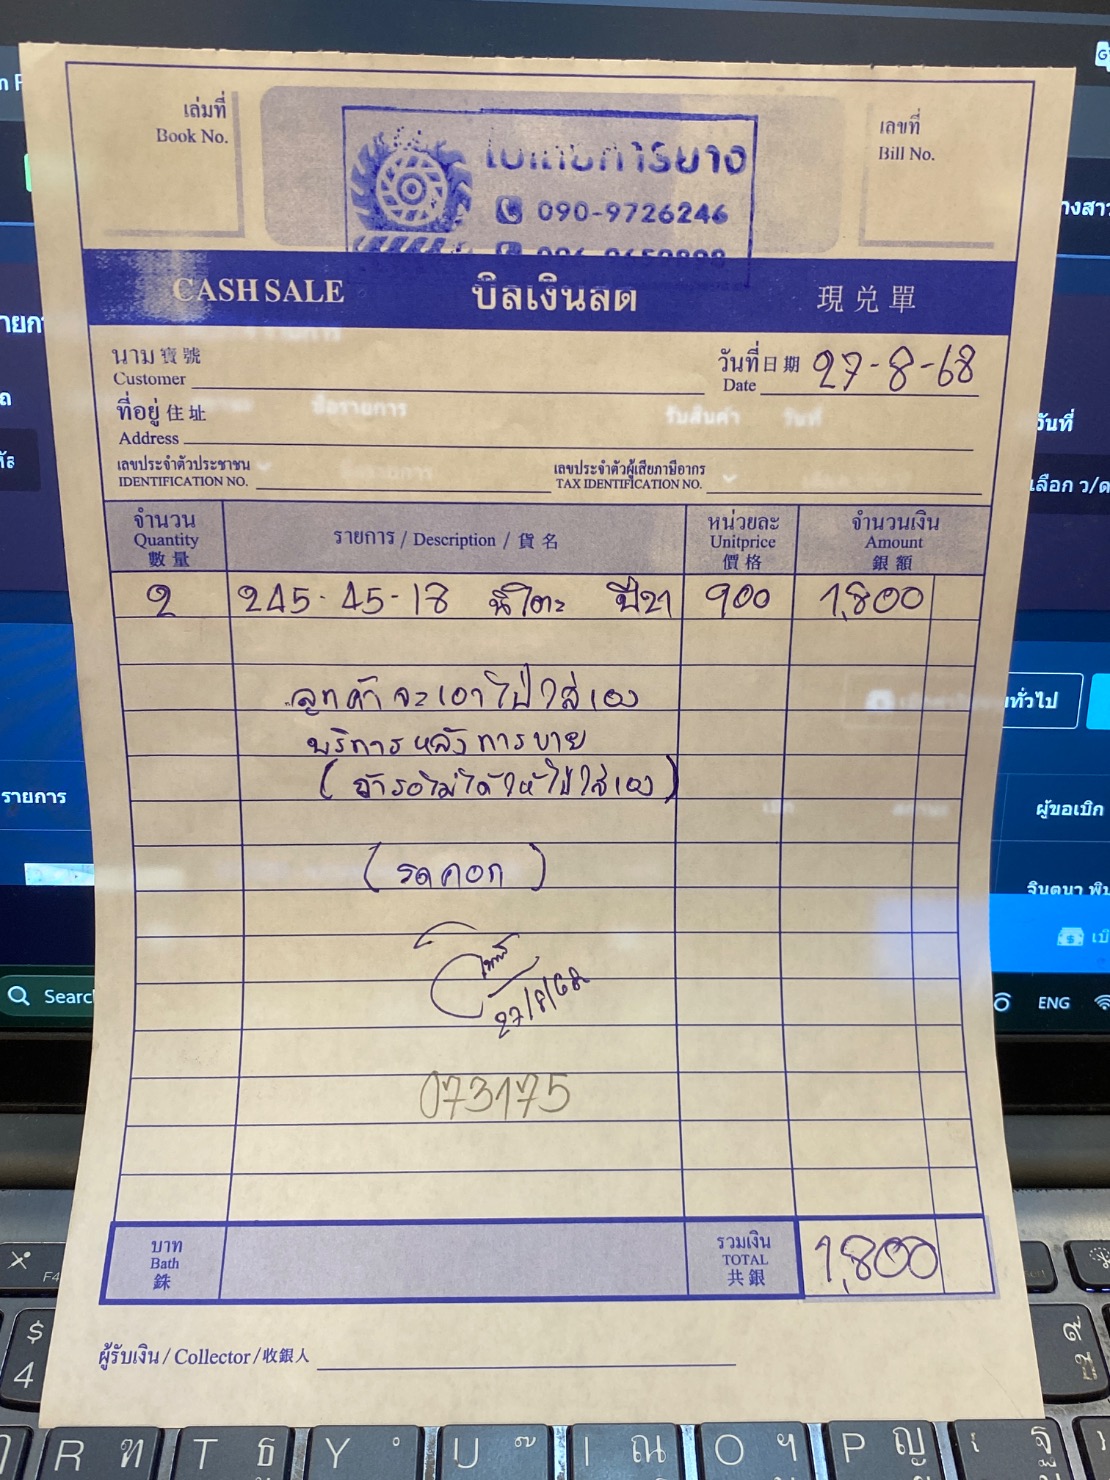 เล่มที่
Book No.
เลขที่
Bill No.
การยาง
090-9726246
CASH SALE บิลเงินสด 現兌單
นาม 寶號
Customer
วันที่ 日期 27-8-68
Date
ที่อยู่ 住址
Address
เลขประจำตัวประชาชน
IDENTIFICATION NO.
เลขประจำตัวผู้เสียภาษีอากร
TAX IDENTIFICATION NO.
จำนวน
Quantity
數量
รายการ / Description / 貨名
หน่วยละ
Unitprice
價格
จำนวนเงิน
Amount
銀額
2 245-45-18 นิโตะ ปี21 900 1,800
ลูกค้าจะเอาไปใส่เอง
บริการหลังการขาย
(ถ้ารอไม่ได้ให้ไปใส่เอง)
(รถคอก)
27/8/68
073175
บาท
Bath
銖
รวมเงิน
TOTAL
共銀
1,800
ผู้รับเงิน / Collector / 收銀人
รายการ
วันที่
เลือก ว/ด
ทั่วไป
ผู้ขอเบิก
จินตนา
ENG
Searc
F4
$
4
R ฑ
T ธ
Y
U
I ณ
O ฯ
P ญ
ฐ